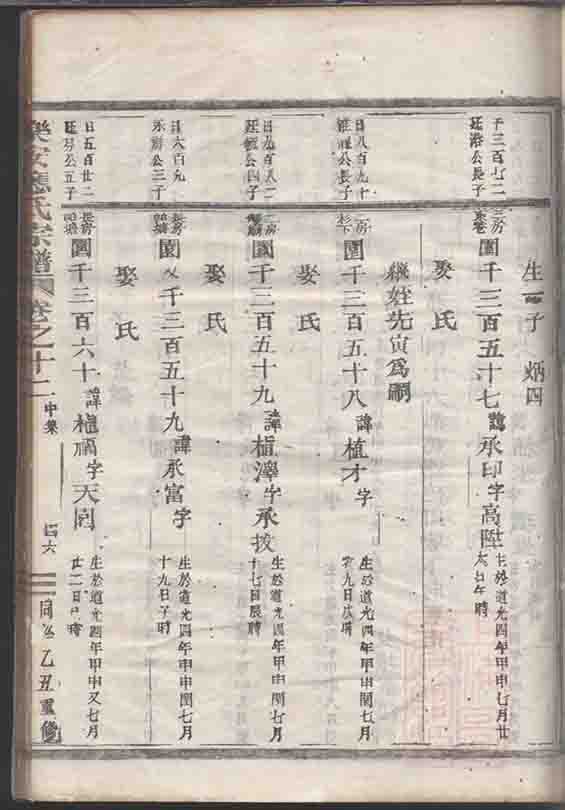 生一子 炳四
千三百七二
廷浴公長子
房
園千三百五十七諱承印字高陞
生於道光四年甲申七月廿
六日午時
娶氏
繼姪先寅爲嗣
日八百九十
公長子
二房
園千三百五十八諱植才字
生於道光四年甲申閏七月
初九日戌時
娶氏
日九百八二
公四子
二房
園千三百五十九諱植澤字承
生於道光四年甲申閏七月
十七日辰時
娶氏
日六百九
公三子
長房
園又千三百五十九諱承富字
生於道光四年甲申閏七月
十九日子時
娶氏
日五百廿二
廷芬公五子
長房
園千三百六十諱植福字天園
生於道光四年甲申又七月
廿二日 時
樂安應氏宗譜 卷之十二 中集 六 同治乙丑重修